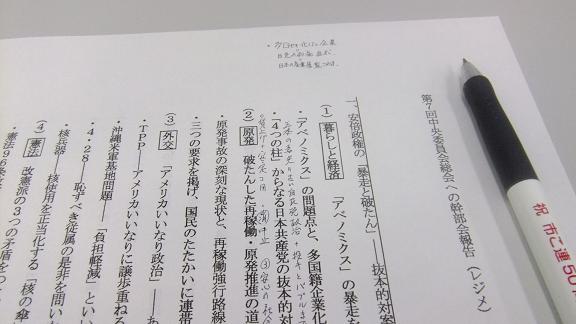 第７回中央委員会総会への幹部会報告（レジメ）
一、安倍政権の「暴走と破たん」――抜本的対案
（１）暮らしと経済　「アベノミクス」の暴走を
・「アベノミクス」の問題点と、多国籍企業化
・「４つの柱」からなる日本共産党の抜本的対
（２）原発　破たんした再稼働・原発推進の道
・原発事故の深刻な現状と、再稼働強行路線
・三つの要求を掲げ、国民のたたかいに連帯
（３）外交　「アメリカいいなり政治」――あ
・ＴＰＰ――アメリカいいなりに譲歩重ねる
・沖縄米軍基地問題――「負担軽減」とい
・４・２８――恥ずべき従属の是非を問い
・核兵器――核使用を正当化する「核の傘
（４）憲法　改憲派の３つの矛盾をつ
・憲法９６条
祝 市ご連 50